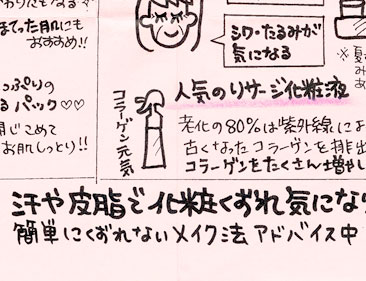 わりにもなる
ほてった肌にも
おすすめ!!
っぷりの
るパック♡♡
閉じこめて
お肌しっとり!!
シワ・たるみが
気になる
人気のリサージ化粧液
コラーゲン元気
老化の80%は紫外線によ
古くなったコラーゲンを排出
コラーゲンをたくさん増やし
汗や皮脂で化粧くずれ気になり
簡単にくずれないメイク法アドバイス中